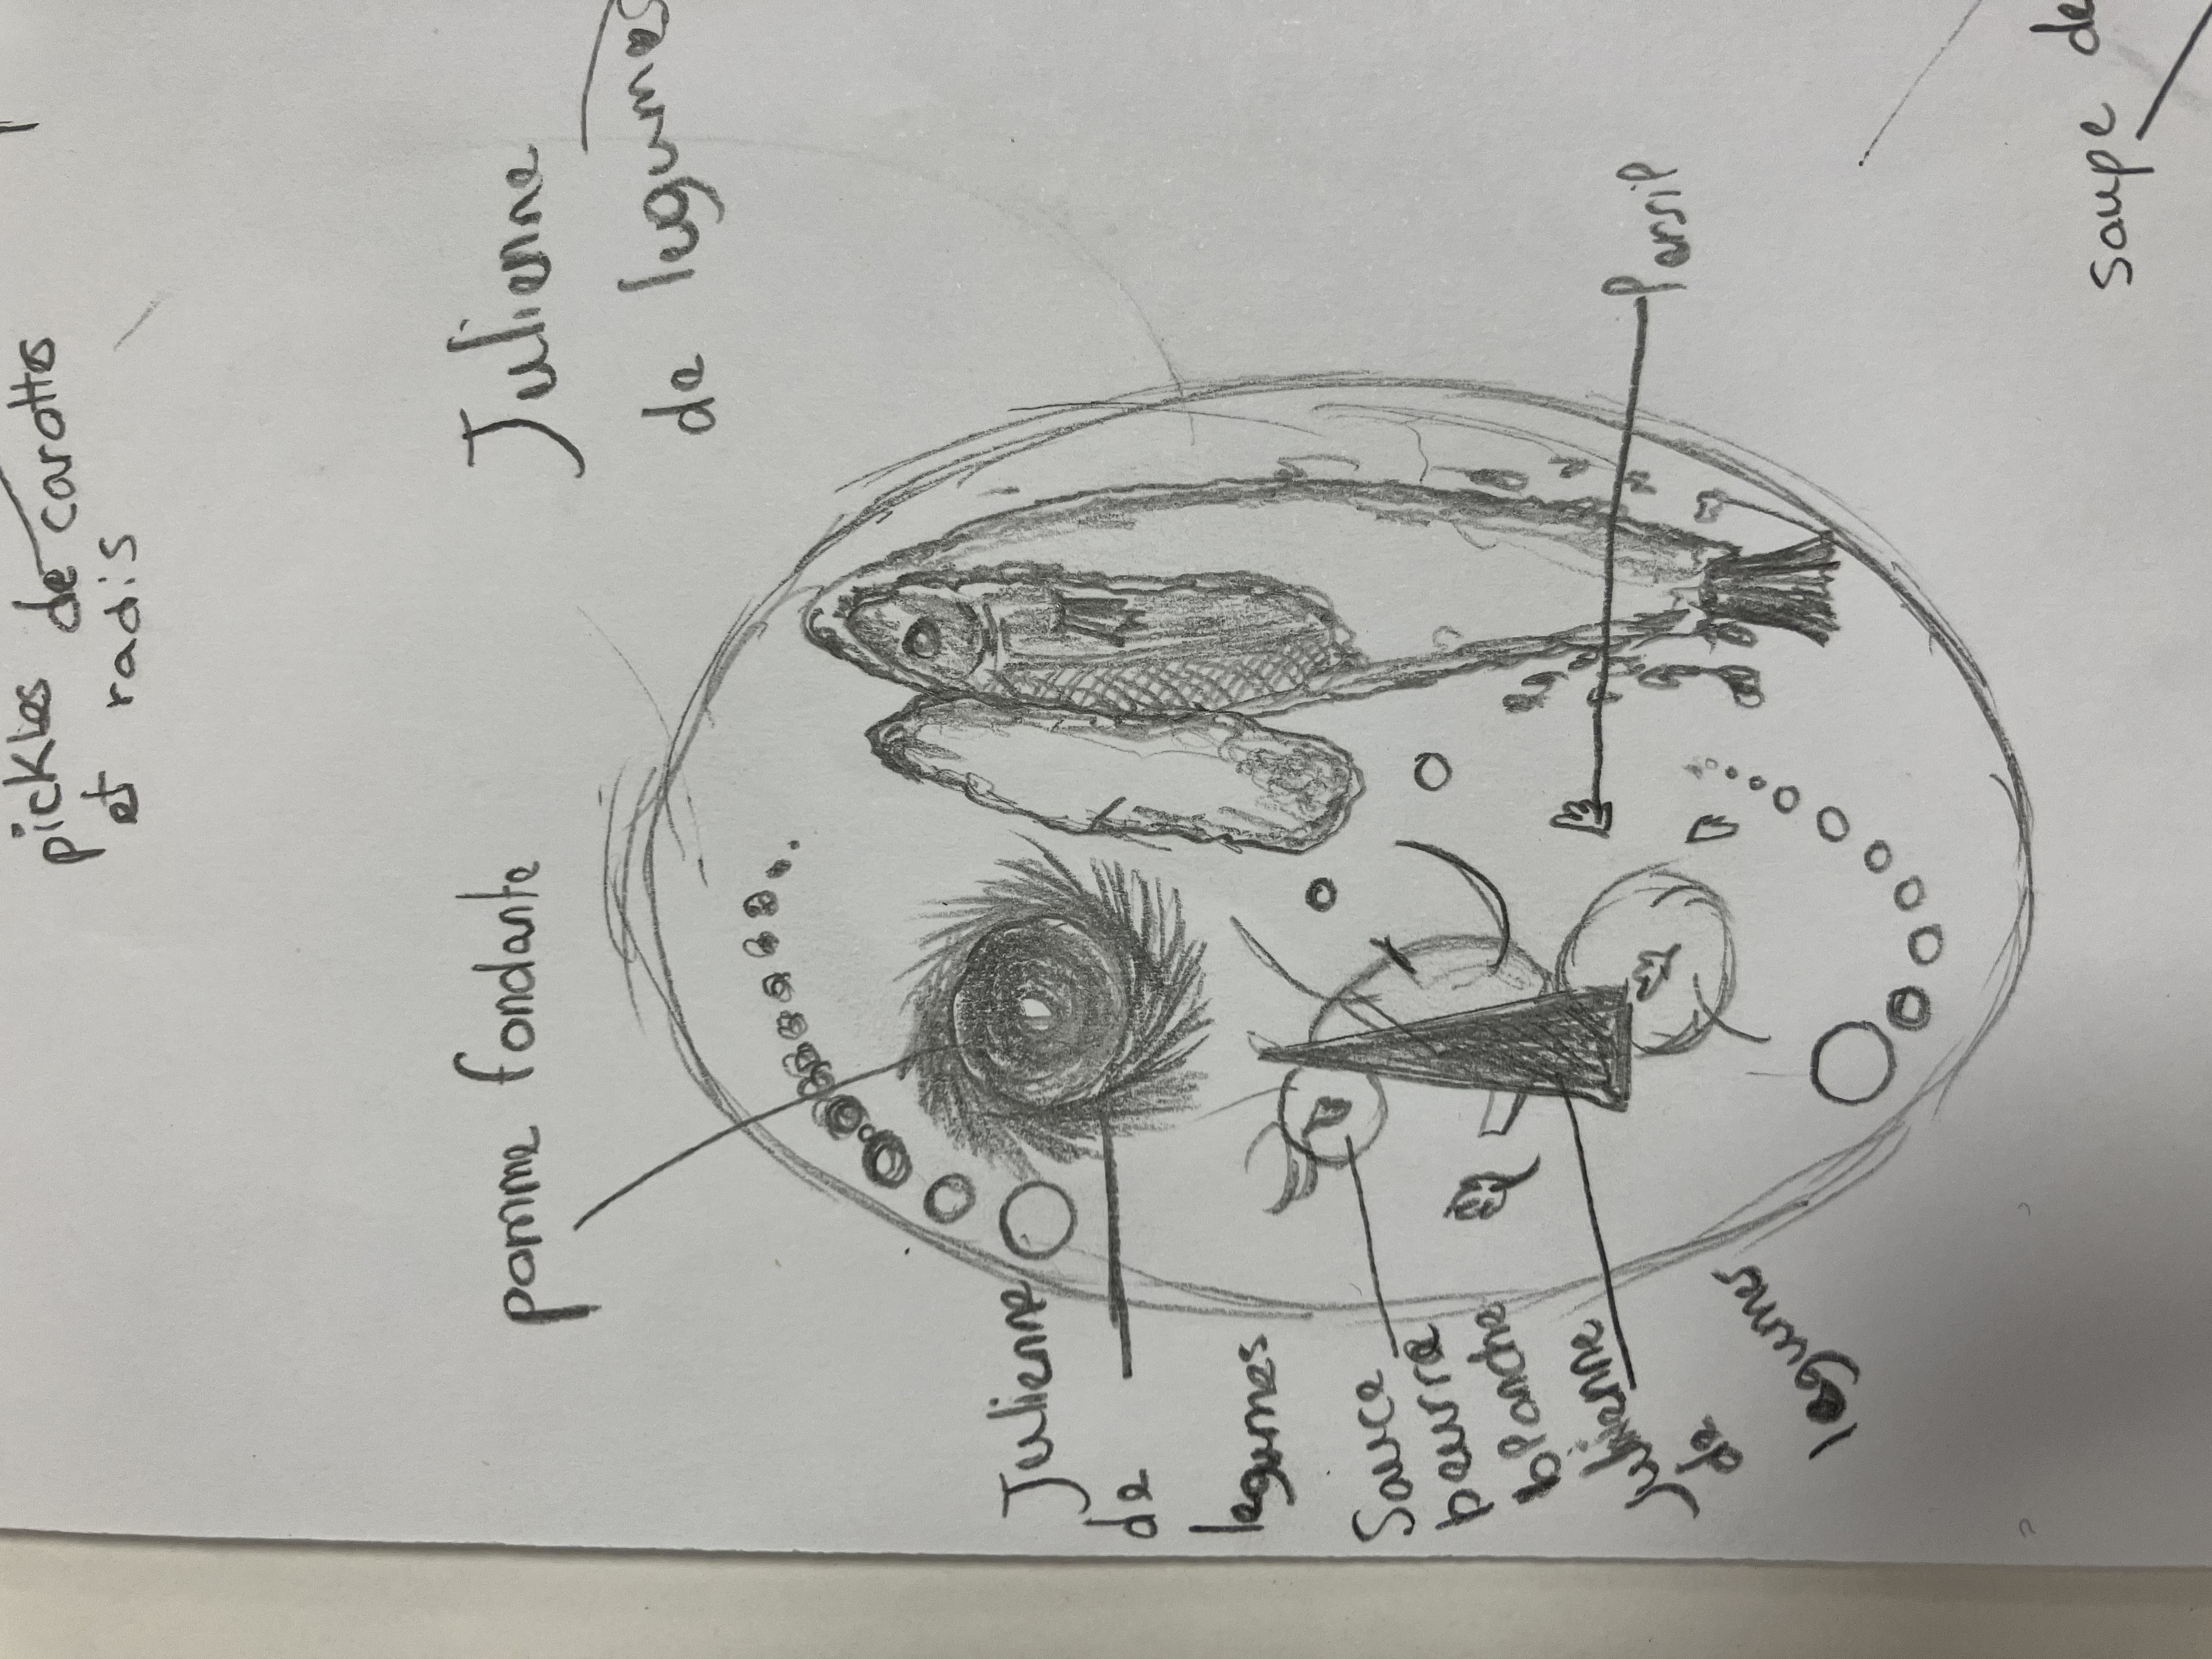 pickles de carottes
et radis
pomme fondante
Julienne
de legumes
Julienne
de
legumes
Sauce
beurre
blanche
Julienne
de
legumes
Persil
soupe de